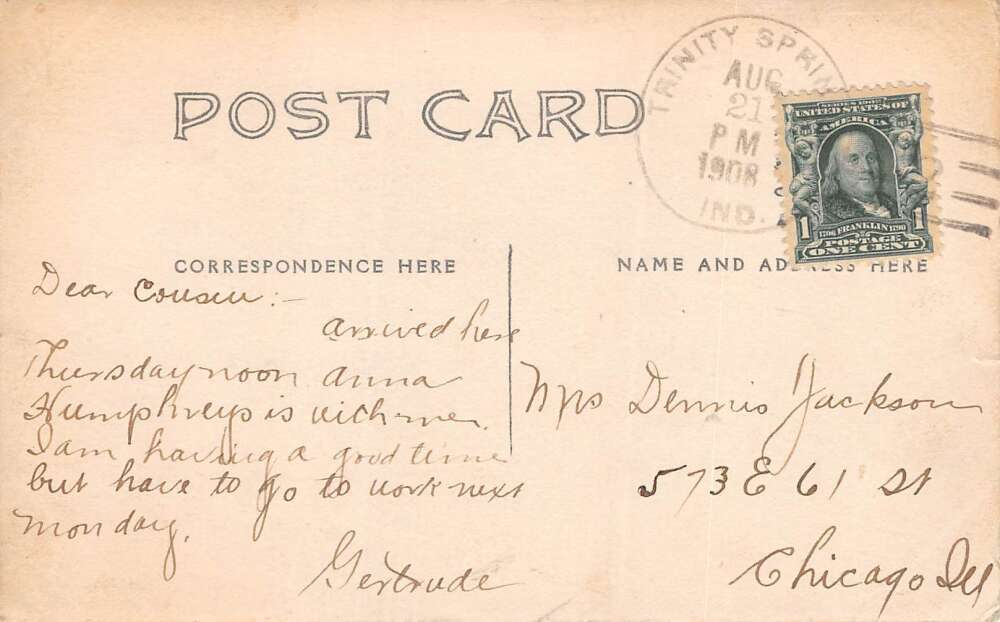 POST CARD
TRINITY SPRIN
AUG
21
PM
1908
IND.
SERIES 1902
UNITED STATES OF
AMERICA
1 1
1706 FRANKLIN 1790
POSTAGE
ONE CENT
CORRESPONDENCE HERE
Dear Cousin:-
arrived here
Thursday noon anna
Humphreys is with me.
I am having a good time
but have to go to work next
monday.
Gertrude
NAME AND ADDRESS HERE
Mrs Dennis Jackson
573 E 61 St
Chicago Ill